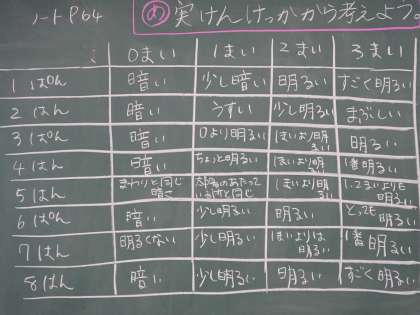 ノートP64 め 実けんけっかから考えよう
0まい 1まい 2まい 3まい
1ぱん 暗い 少し暗い 明るい すごく明るい
2はん 暗い うすい 少し明るい まぶしい
3ぱん 暗い 0より明るい 1まいより明るい 明るい
4はん 暗い ちょっと明るい 1まいより明るい 1番明るい
5はん まわりと同じ暗さ 太陽のあたっているときと同じ 1まいより明るい 1.2まいよりも明るい
6ぱん 暗い 少し明るい 明るい とっても明るい
7はん 明るくない 少し明るい 1まいよりは明るい 1番明るい
8はん 暗い 少し明るい 明るい すごく明るい